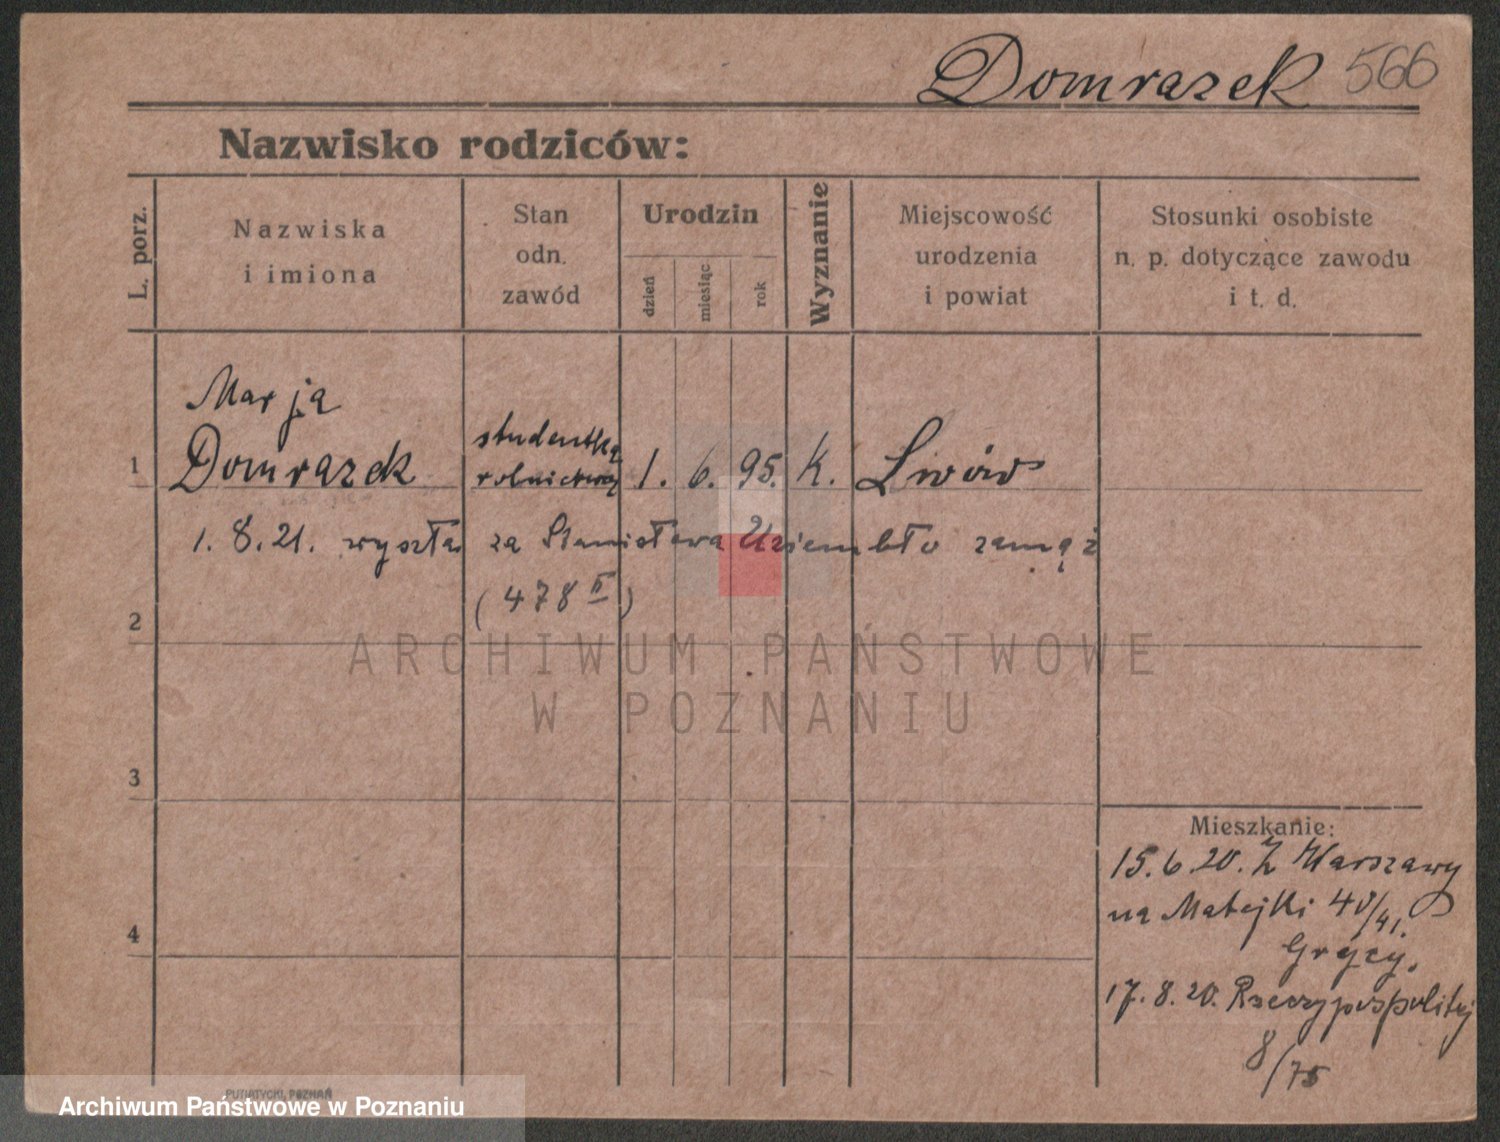 Domrazek 566
Nazwisko rodziców:
L. porz.
Nazwiska
i imiona
Stan
odn.
zawód
Urodzin
dzień
miesiąc
rok
Wyznanie
Miejscowość
urodzenia
i powiat
Stosunki osobiste
n. p. dotyczące zawodu
i t. d.
Marja
1 Domrazek
studentka
rolnictwa
1. 6. 95. K. Lwów
1. 8. 21. wyszła za Stanisława Uziembło zamąż
(478 II)
2
3
4
ARCHIWUM PAŃSTWOWE
W POZNANIU
Mieszkanie:
15.6.20. Z Warszawy
na Matejki 40/41.
17.8.20. Rzeczypospolitej
8/75
PUŹATYCKI, POZNAŃ
Archiwum Państwowe w Poznaniu